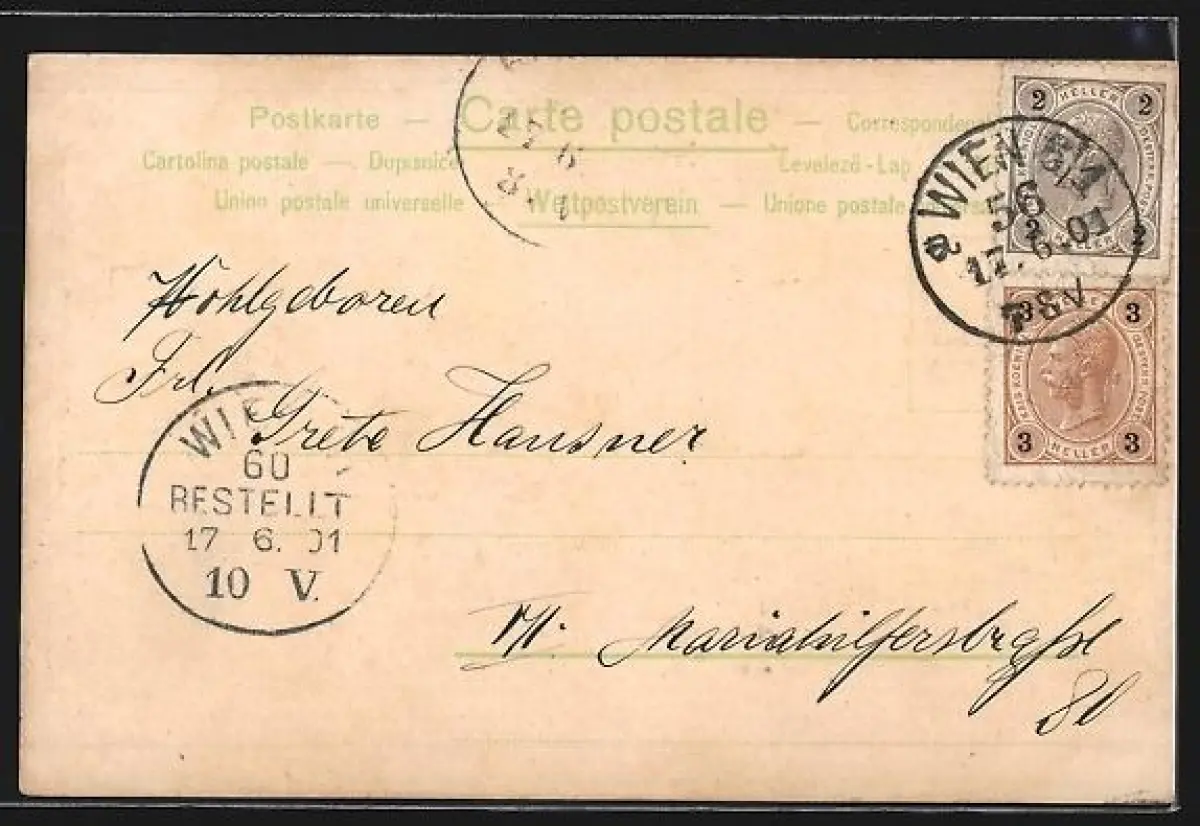 Postkarte — Carte postale — Correspondenz
Cartolina postale — Dopisnice Levelezö-Lap
Union postale universelle — Weltpostverein — Unione postale
2 HELLER 2
2 HELLER 2
WIEN 5/1
56
17.6.01
7-8V
3 3
3 HELLER 3
Wohlgeboren
Frl.
Grete Hausner
WIEN
60
BESTELLT
17 6. 01
10 V.
VI. Mariahilferstrasse
80